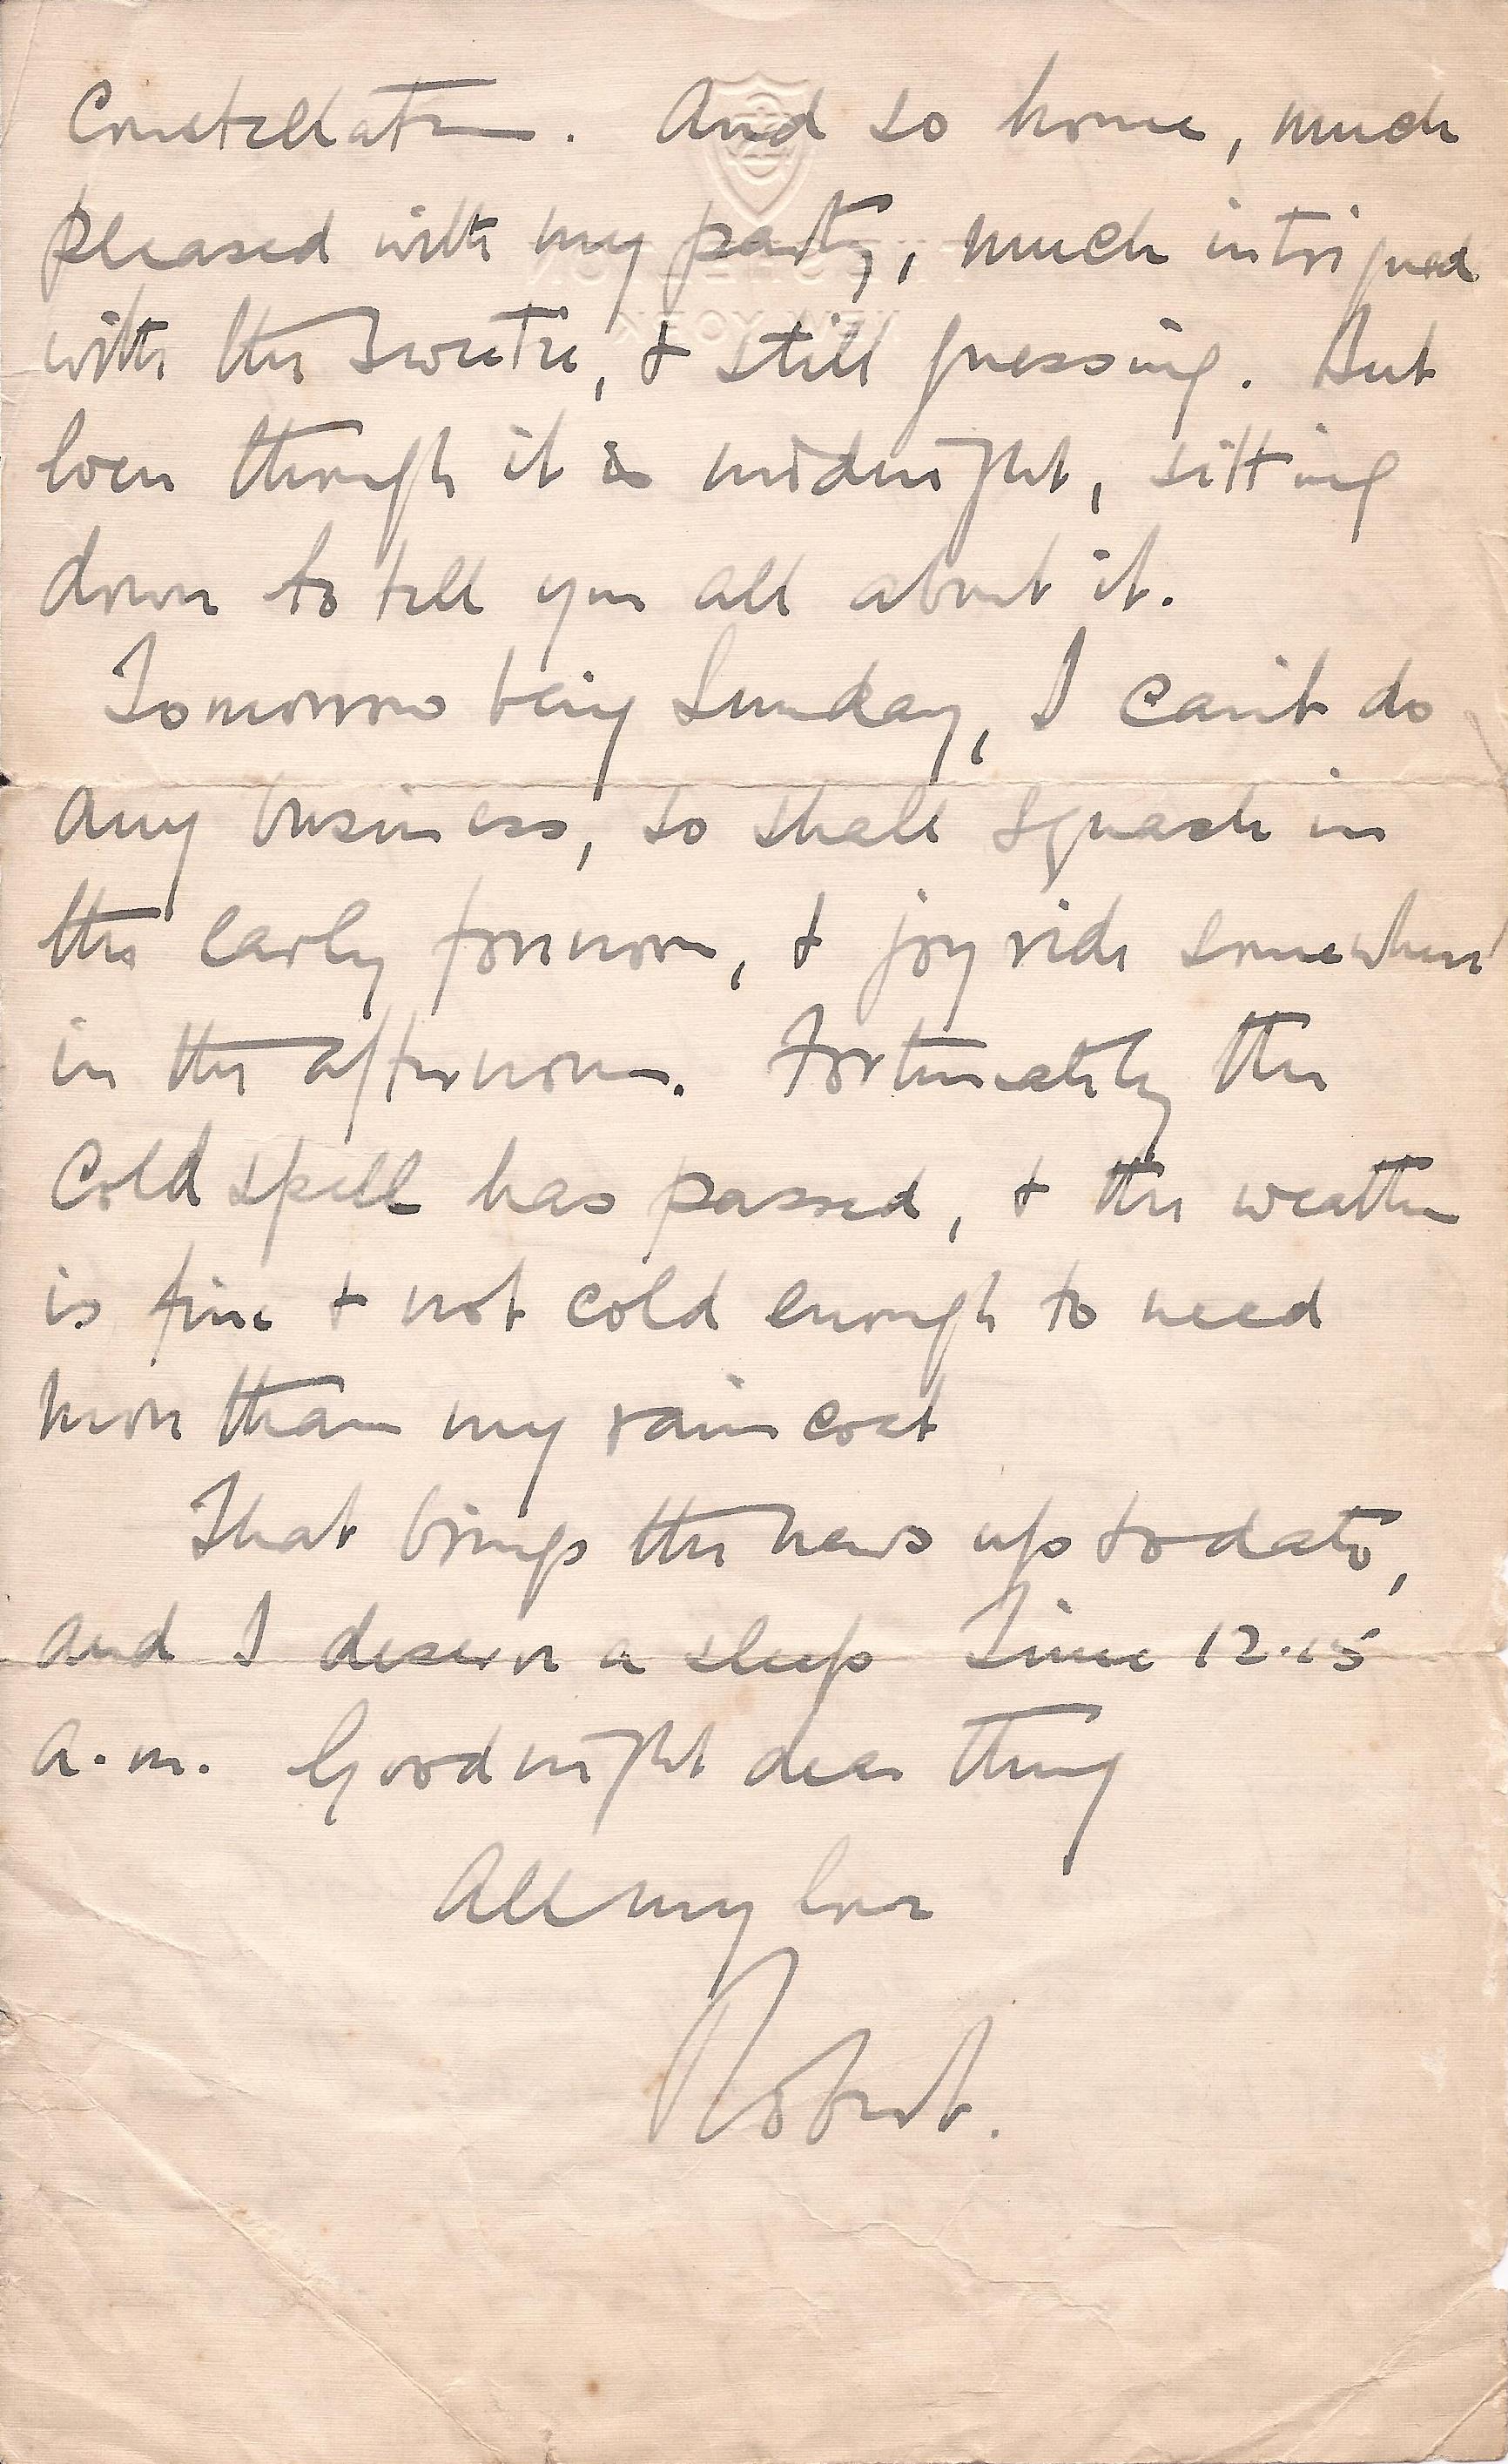 Constellation. And so home, much
pleased with my party, much intrigued
with the Sweetie, & still guessing. But
even though it is midnight, sitting
down to tell you all about it.
Tomorrow being Sunday, I can't do
any business, so shall squash in
the early forenoon, & joy ride somewhere
in the afternoon. Fortunately the
cold spell has passed, & the weather
is fine & not cold enough to need
more than my rain coat
That brings the news up to date,
and I deserve a sleep Time 12.15
a.m. Goodnight dear thing
All my love
Robert.